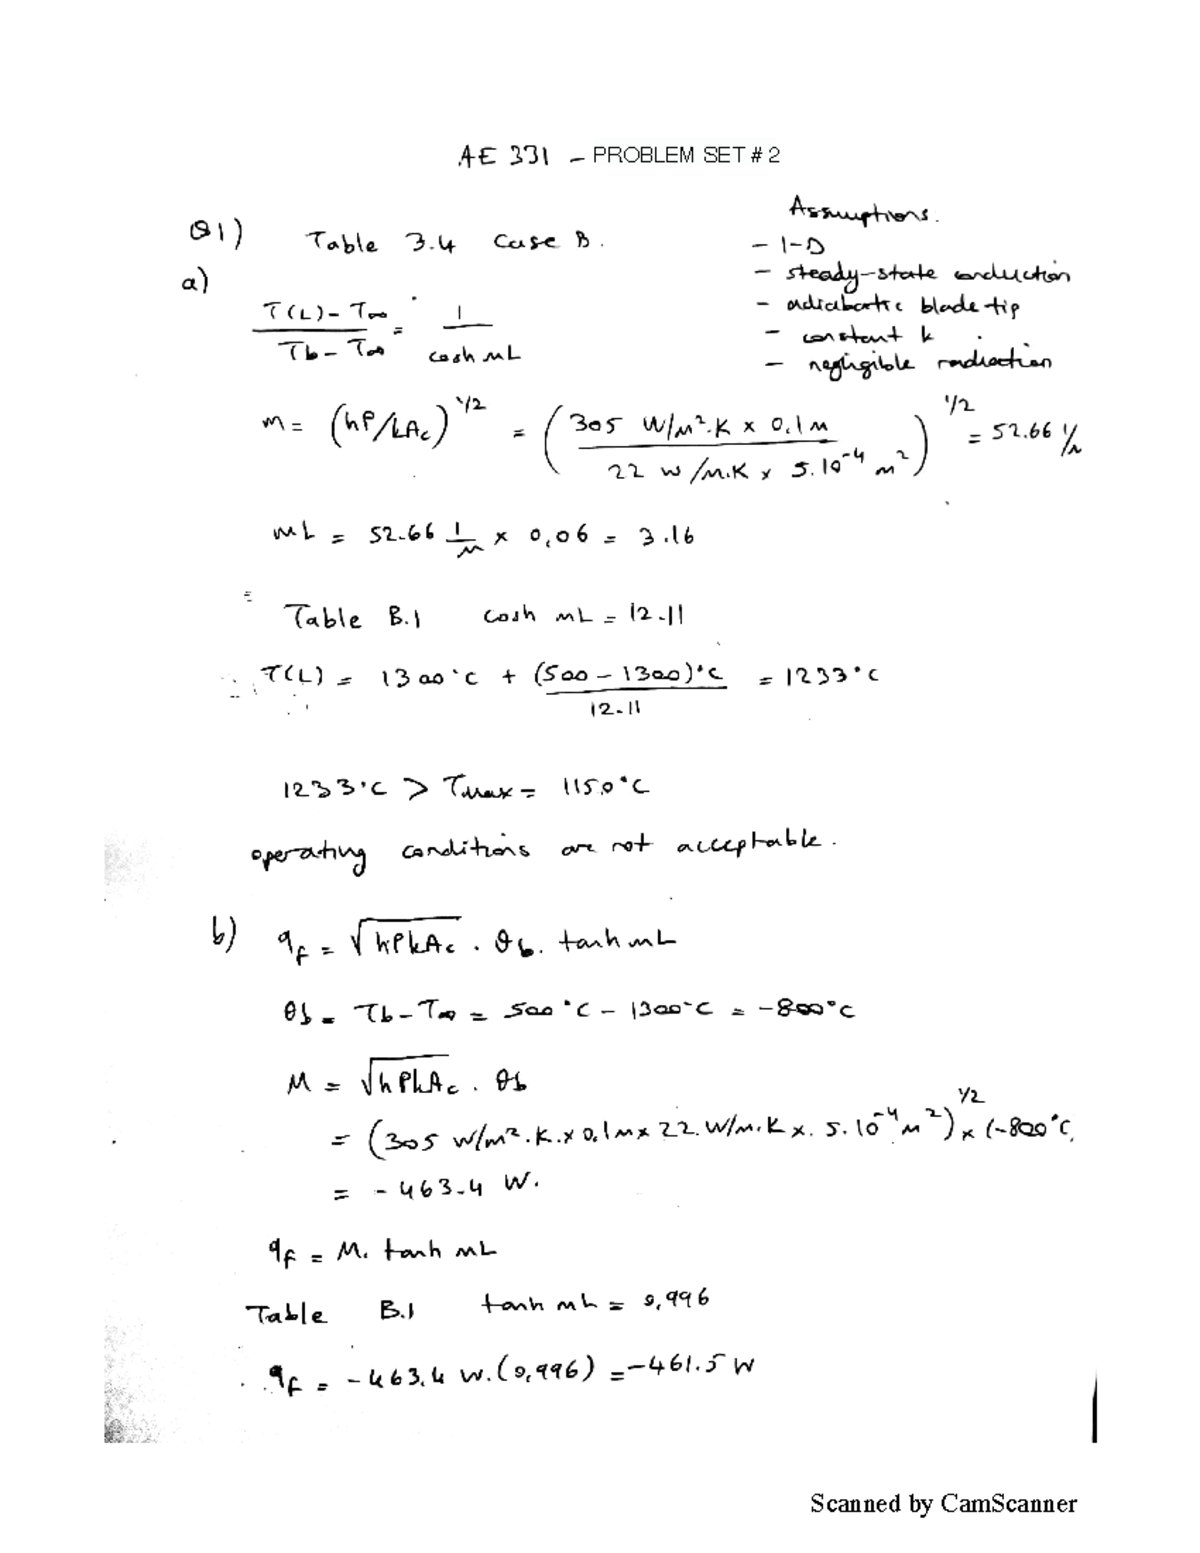 AE 331 – PROBLEM SET # 2
Assumptions.
Q1) Table 3.4 Case B.
- 1-D
- steady-state conduction
- adiabatic blade tip
- constant k
- negligible radiation
a)
T(L) - T∞ / Tb - T∞ = 1 / cosh mL
m = (hP/kAc)^1/2 = (305 W/m².K x 0.1 m / 22 W/m.K x 5.10^-4 m²)^1/2 = 52.66 1/m
mL = 52.66 1/m x 0,06 = 3.16
Table B.1 cosh mL = 12.11
T(L) = 1300°C + (500 - 1300)°C / 12.11 = 1233°C
1233°C > Tmax = 1150°C
operating conditions are not acceptable.
b) qf = √hPkAc . θb. tanh mL
θb = Tb - T∞ = 500°C - 1300°C = -800°C
M = √hPkAc . θb
= (305 W/m².K. x 0,1m x 22. W/m.K x. 5.10^-4 m²)^1/2 x (-800°C
= - 463.4 W.
qf = M. tanh mL
Table B.1 tanh mL = 0,996
qf = -463.4 W.(0,996) = -461.5 W
Scanned by CamScanner